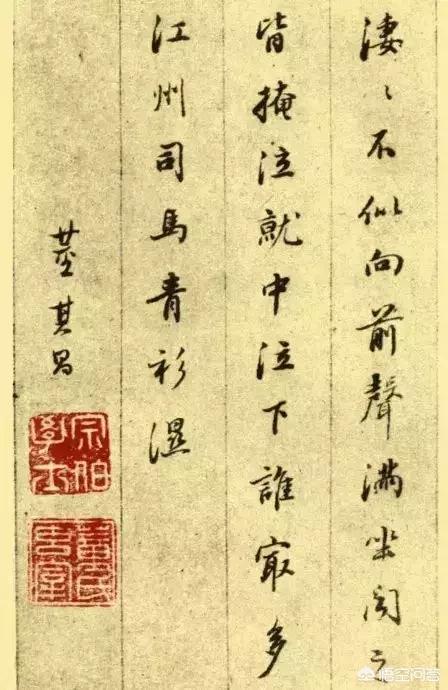 淒〻不似向前聲滿坐聞之
皆掩泣就中泣下誰最多
江州司馬青衫濕
董其昌
宗伯學士
董氏玄宰
悟空问答